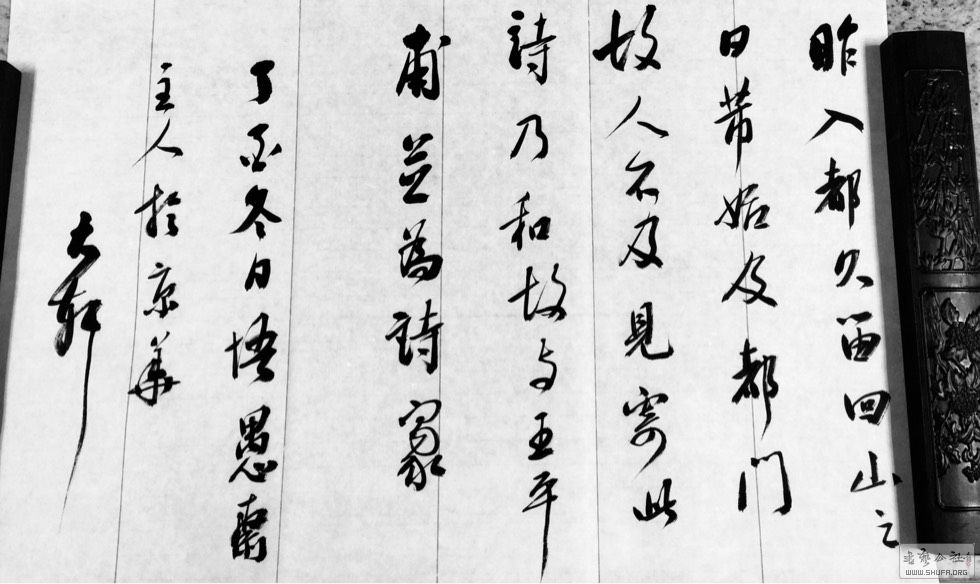 昨入都久留回山之
日带姤及都門
故人不及見寄此
詩乃和故与王平
甫並為詩家
丁酉冬日悟愚齋
主人於京華
大軒
書學公社
WWW.SHUFA.ORG